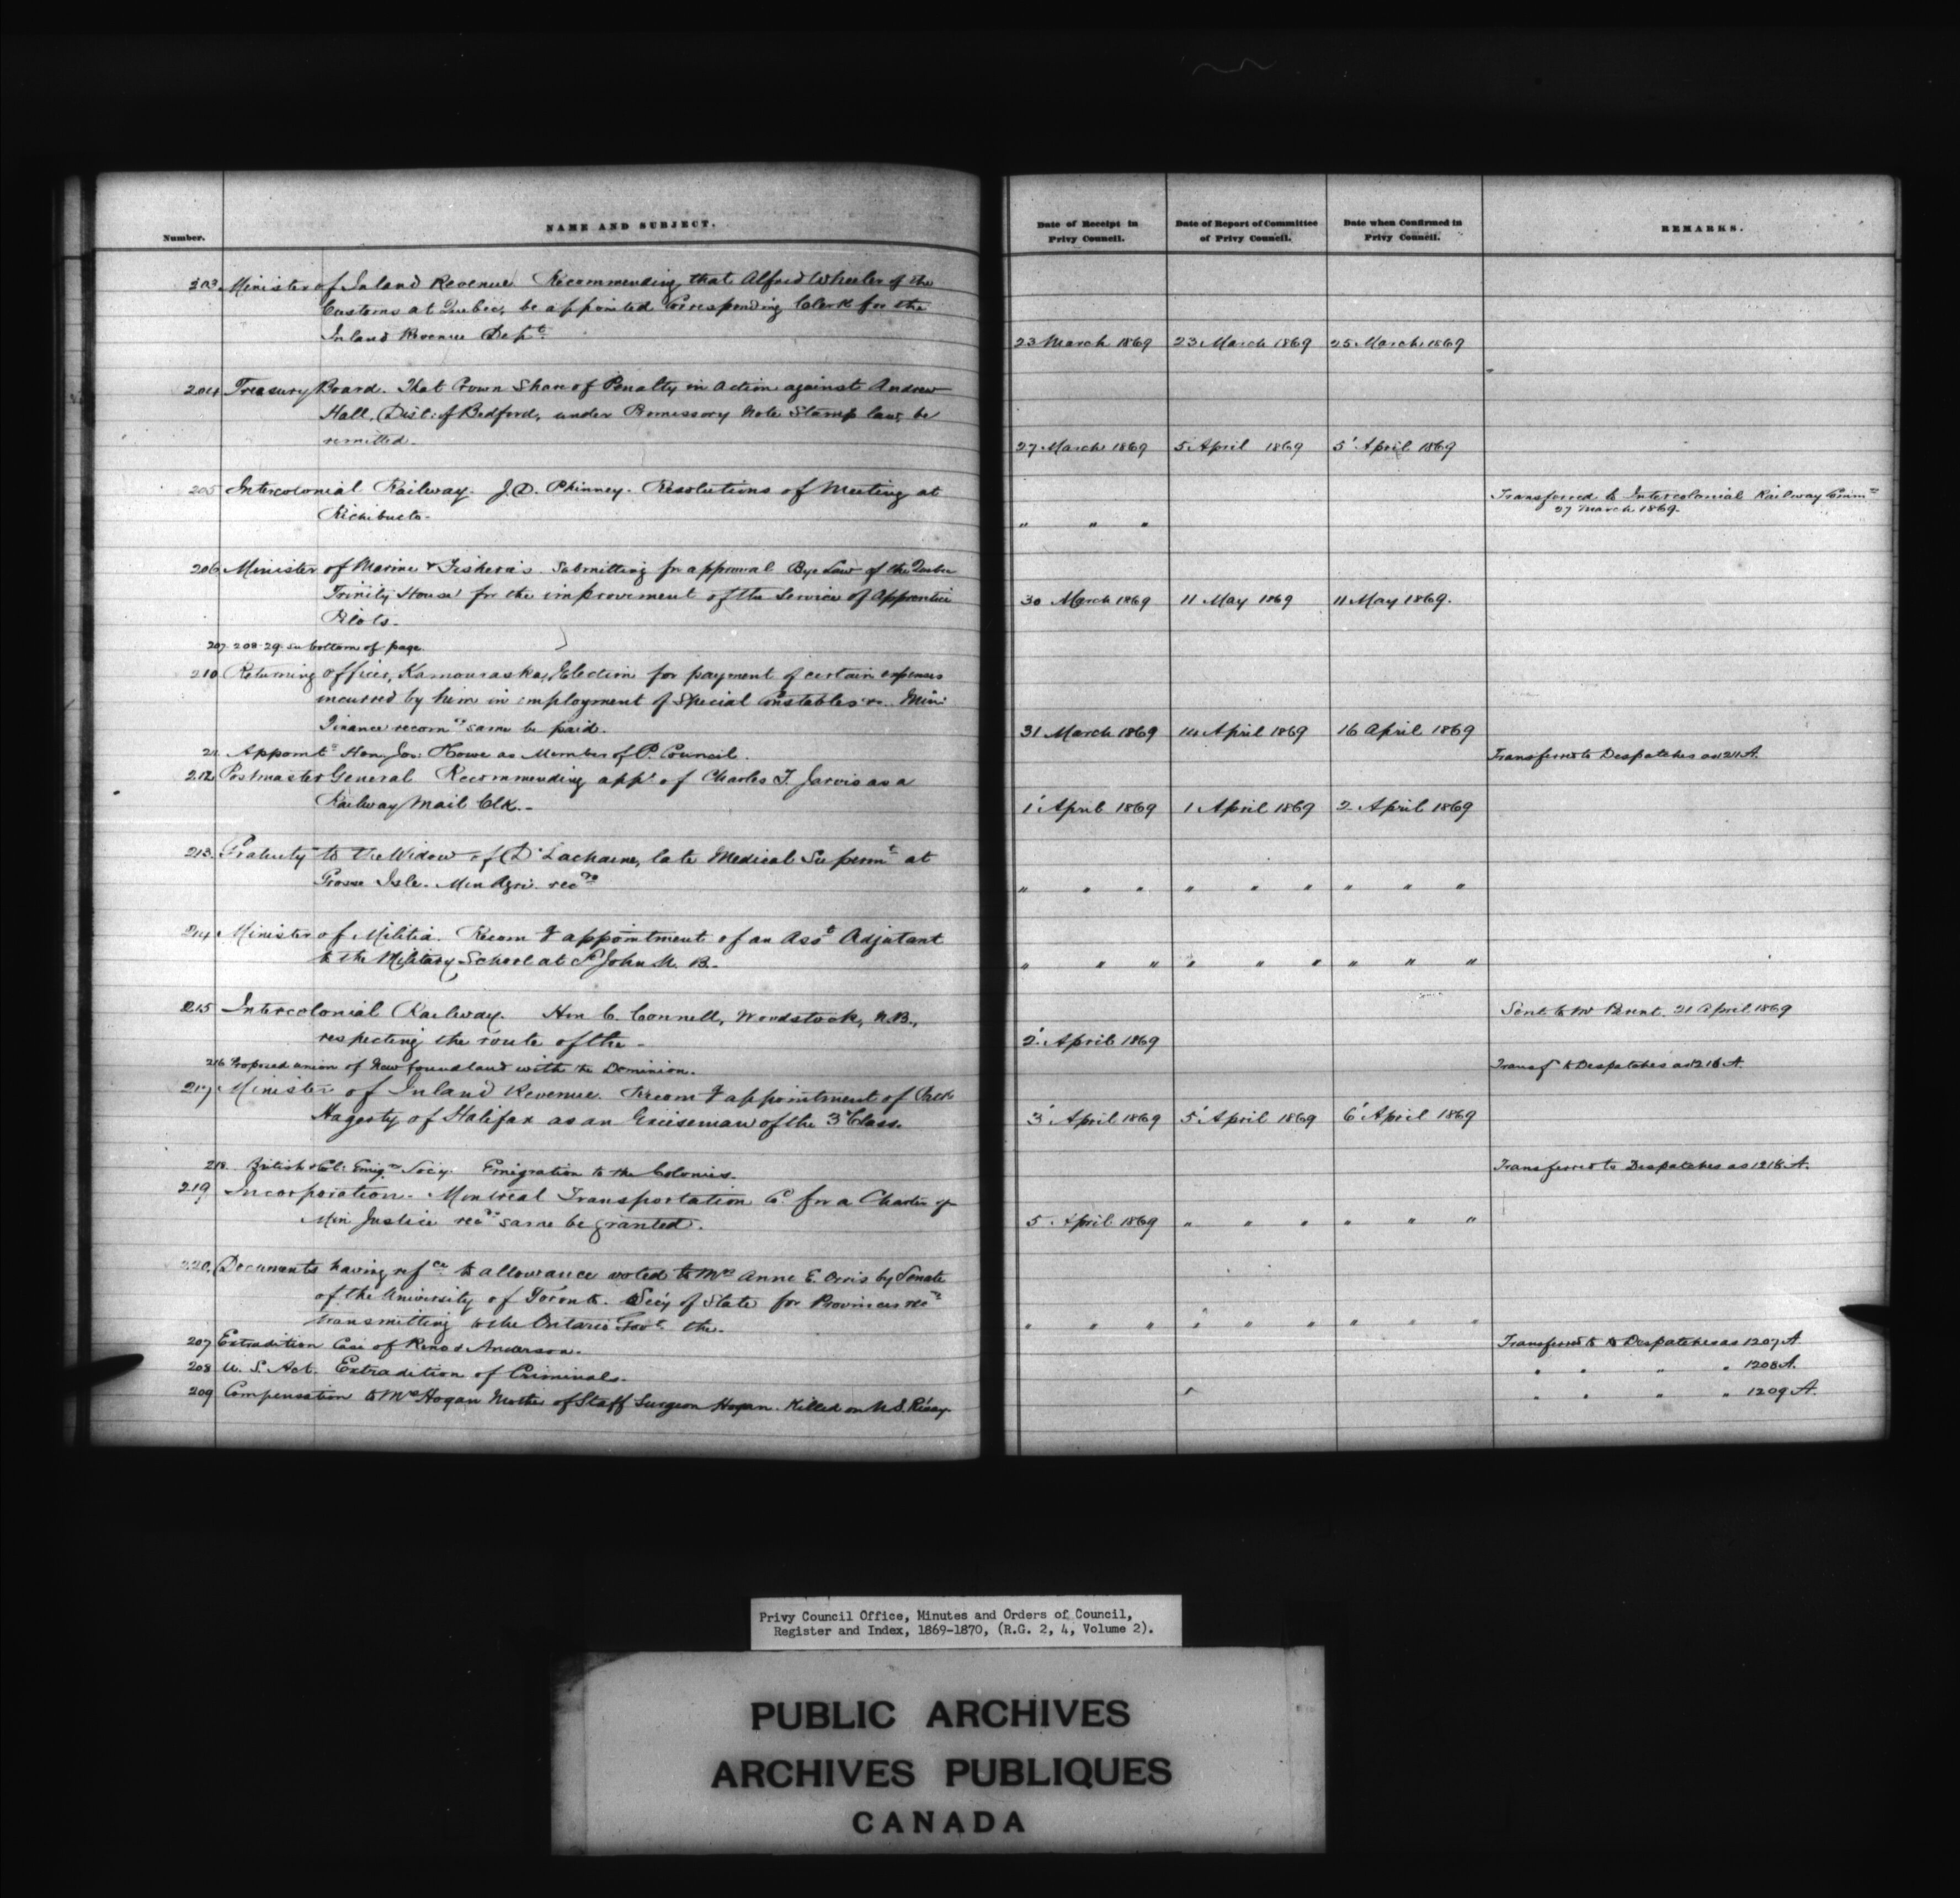 Number.
NAME AND SUBJECT.
Date of Receipt in Privy Council.
Date of Report of Committee of Privy Council.
Date when Confirmed in Privy Council.
REMARKS.
203. Minister of Inland Revenue Recommending that Alfred Wheeler of the
Customs at Quebec, be appointed Corresponding Clerk for the
Inland Revenue Dept. 23 March 1869 23 March 1869 25 March 1869
204 Treasury Board. That Crown Share of Penalty in action against Andrew
Hall, Dist: of Bedford, under Promissory Note Stamp law, be
remitted. 27 March 1869 5 April 1869 5 April 1869
205 Intercolonial Railway. J.D. Phinney. Resolutions of Meeting at Transferred to Intercolonial Railway Comm
Richibucto. " " " 27 March 1869.
206 Minister of Marine & Fisheries. Submitting for approval Bye Law of the Quebec
Trinity House for the improvement of the Service of Apprentice 30 March 1869 11 May 1869 11 May 1869.
Pilots.
207. 208. 29. see bottom of page.
210 Returning officer, Kamouraska, Election for payment of certain expenses
incurred by him in employment of Special Constables &c. Min:
Finance recomds same be paid. 31 March 1869 14 April 1869 16 April 1869
211 Appomt Hon. Jos: Howe as Member of P. Council. Transferred to Despatches as 211 A.
212 Postmaster General Recommending appt of Charles T. Jarvis as a
Railway Mail Clk. 1 April 1869 1 April 1869 2 April 1869
213. Gratuity to the Widow of Dr Lachaine, late Medical Superint at
Grosse Isle. Min Agri. recds " " " " " " " " "
214. Minister of Militia. Recomdg appointment of an Asst Adjutant
to the Military School at St John N. B. " " " " " " " " "
215 Intercolonial Railway. Hon C. Connell, Woodstock, N.B., Sent to Mr 21 April 1869
respecting the route of the 2 April 1869
216 Proposed union of Newfoundland with the Dominion. Transfd to Despatches as 1216 A.
217 Minister of Inland Revenue. Recomdg appointment of Patk
Hagerty of Halifax as an Exciseman of the 3d Class. 3 April 1869 5 April 1869 6 April 1869
218. British & Col: Emign Socy. Emigration to the Colonies. Transferred to Despatches as 1218 A.
219 Incorporation. Montreal Transportation Co. for a Charter of
Min Justice recds same be granted. 5 April 1869 " " " " " "
220. Documents having refce to allowance voted to Mrs Anne E. Orris by Senate
of the University of Toronto. Secy of State for Provinces recds
transmitting to the Ontario Govt the. " " " " " " " " "
207 Extradition Case of Reno & Anderson. Transferred to Despatches as 1207 A
208 U. S. Act. Extradition of Criminals. " " " " 1208 A.
209 Compensation to Mrs Hogan Mother of Staff Surgeon Hogan. Killed on U.S. " " " " 1209 A.
Privy Council Office, Minutes and Orders of Council,
Register and Index, 1869-1870, (R.G. 2, 4, Volume 2).
PUBLIC ARCHIVES
ARCHIVES PUBLIQUES
CANADA